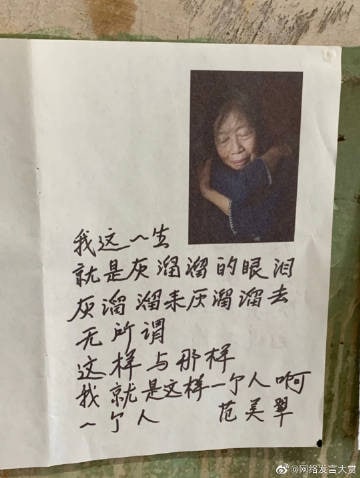 我这一生
就是灰溜溜的眼泪
灰溜溜来灰溜溜去
无所谓
这样与那样
我就是这样一个人啊
一个人 范美翠
@网络发言大赏